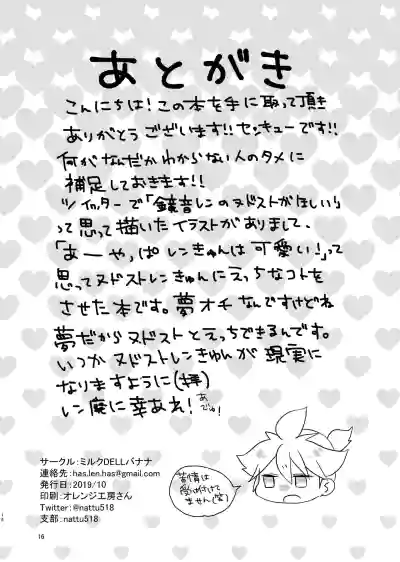 あとがき
こんにちは!この本を手に取って頂き
ありがとうございます!!センキューです!!
何がなんだかわからない人のタメに
補足しておきます!!
ツイッターで「鏡音レンのヌドストがほしい」
って思って描いたイラストがありまして、
「あーやっぱレンきゅんは可愛い!」って
思ってヌドストレンきゅんにえっちなコトを
させた本です。夢オチなんですけどね
夢だからヌドストとえっちできるんです。
いつかヌドストレンきゅんが現実に
なりますように(拝)
レン廃に幸あれ!
あでゅ!
サークル:ミルクDELLバナナ
連絡先:has.len.has@gmail.com
発行日:2019/10
印刷:オレンジ工房さん
Twitter:@nattu518
支部:nattu518
苦情は
受け付けて
ません(笑)
16